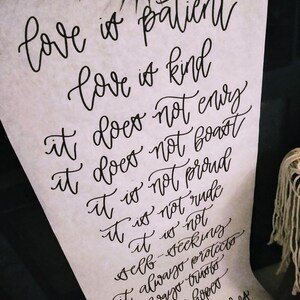 love is patient
love is kind
it does not envy
it does not boast
it is not proud
it is not rude
it is not
self-seeking
it always protects
always trusts
hopes